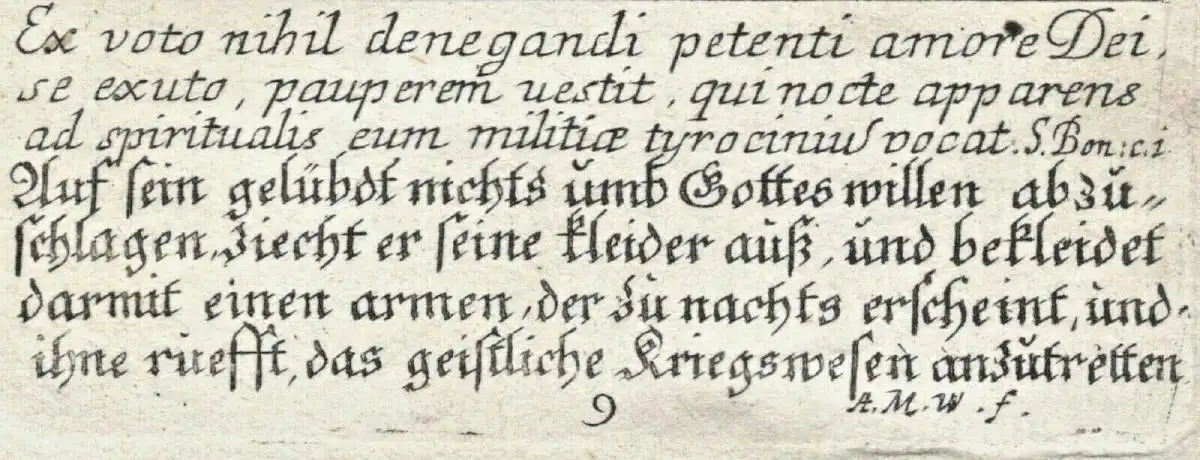 Ex voto nihil denegandi petenti amore Dei,
se exuto, pauperem̄ uestit, qui nocte apparens
ad spiritualis eum militiæ tyrociniū vocat. S. Bon: c. i.
Auf ſein gelübdt nichts ŭmb Gottes willen abzŭ〟
ſchlagen, ziecht er ſeine kleider auß, ŭnd bekleidet
darmit einen armen, der zŭ nachts erſcheint, ŭnd
ihne rŭefft, das geiſtliche Kriegsweſen anzŭtretten
9
A. M. W. f.